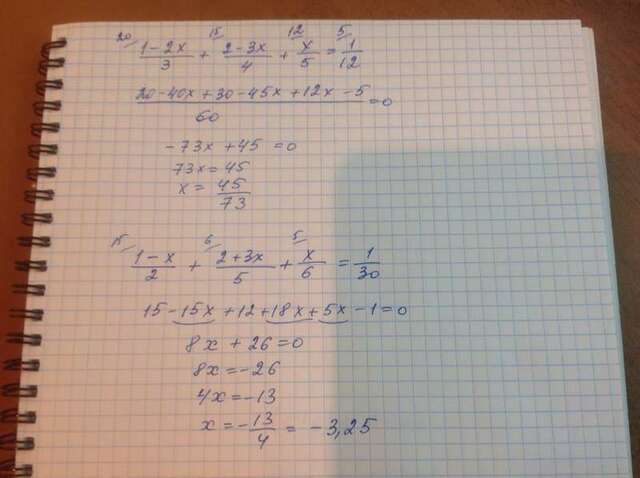 20/ (1-2x)/3 + 15/ (2-3x)/4 + 12/ x/5 = 5/ 1/12
(20-40x+30-45x+12x-5)/60 = 0
-73x+45 = 0
73x = 45
x = 45/73
15/ (1-x)/2 + 6/ (2+3x)/5 + 5/ x/6 = 1/30
15-15x+12+18x+5x-1=0
8x+26=0
8x=-26
4x=-13
x=-13/4 = -3,25